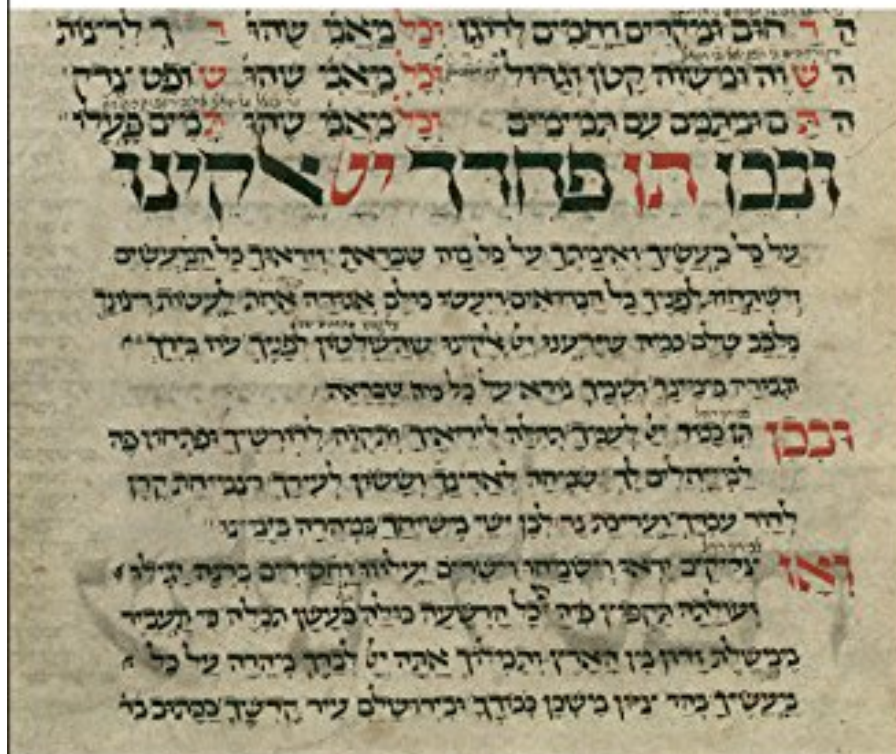 ה ר חום ומקדים רחמים לרוגז וכל מאמי׳ שהו׳ ר ך לרצות
ה ש וה ומשוה קטן וגדול וכל מאמי׳ שהו׳ ש ופט צדק
ה ת ם ומתמם עם תמימים וכל מאמי׳ שהו׳ ת מים פעלו
ובכן תן פחדך יי׳ אלקינו
על כל מעשיך ואימתך על כל מה שבראת וייראוך כל המעשים
וישתחוו לפניך כל הברואים ויעשו כולם אגודה אחת לעשות רצונך
בלבב שלם כמה שידענו יי׳ אלקינו שהשלטון לפניך עוז בידך
וגבורה בימינך ושמך נורא על כל מה שבראת
ובכן תן כבוד יי׳ לעמך תהלה ליראיך ותקוה לדורשיך ופתחון פה
למיחלים לך שמחה לארצך וששון לעירך וצמיחת קרן
לדוד עבדך ועריכת נר לבן ישי משיחך במהרה בימינו
ואז צדיקים יראו וישמחו וישרים יעלוזו וחסידים ברנה יגילו
ועולתה תקפוץ פיה וכל הרשעה כולה כעשן תכלה כי תעביר
ממשלת זדון מן הארץ ותמלוך אתה יי׳ לבדך מהרה על כל
מעשיך בהר ציון משכן כבודך ובירושלים עיר קדשך ככתוב בד׳